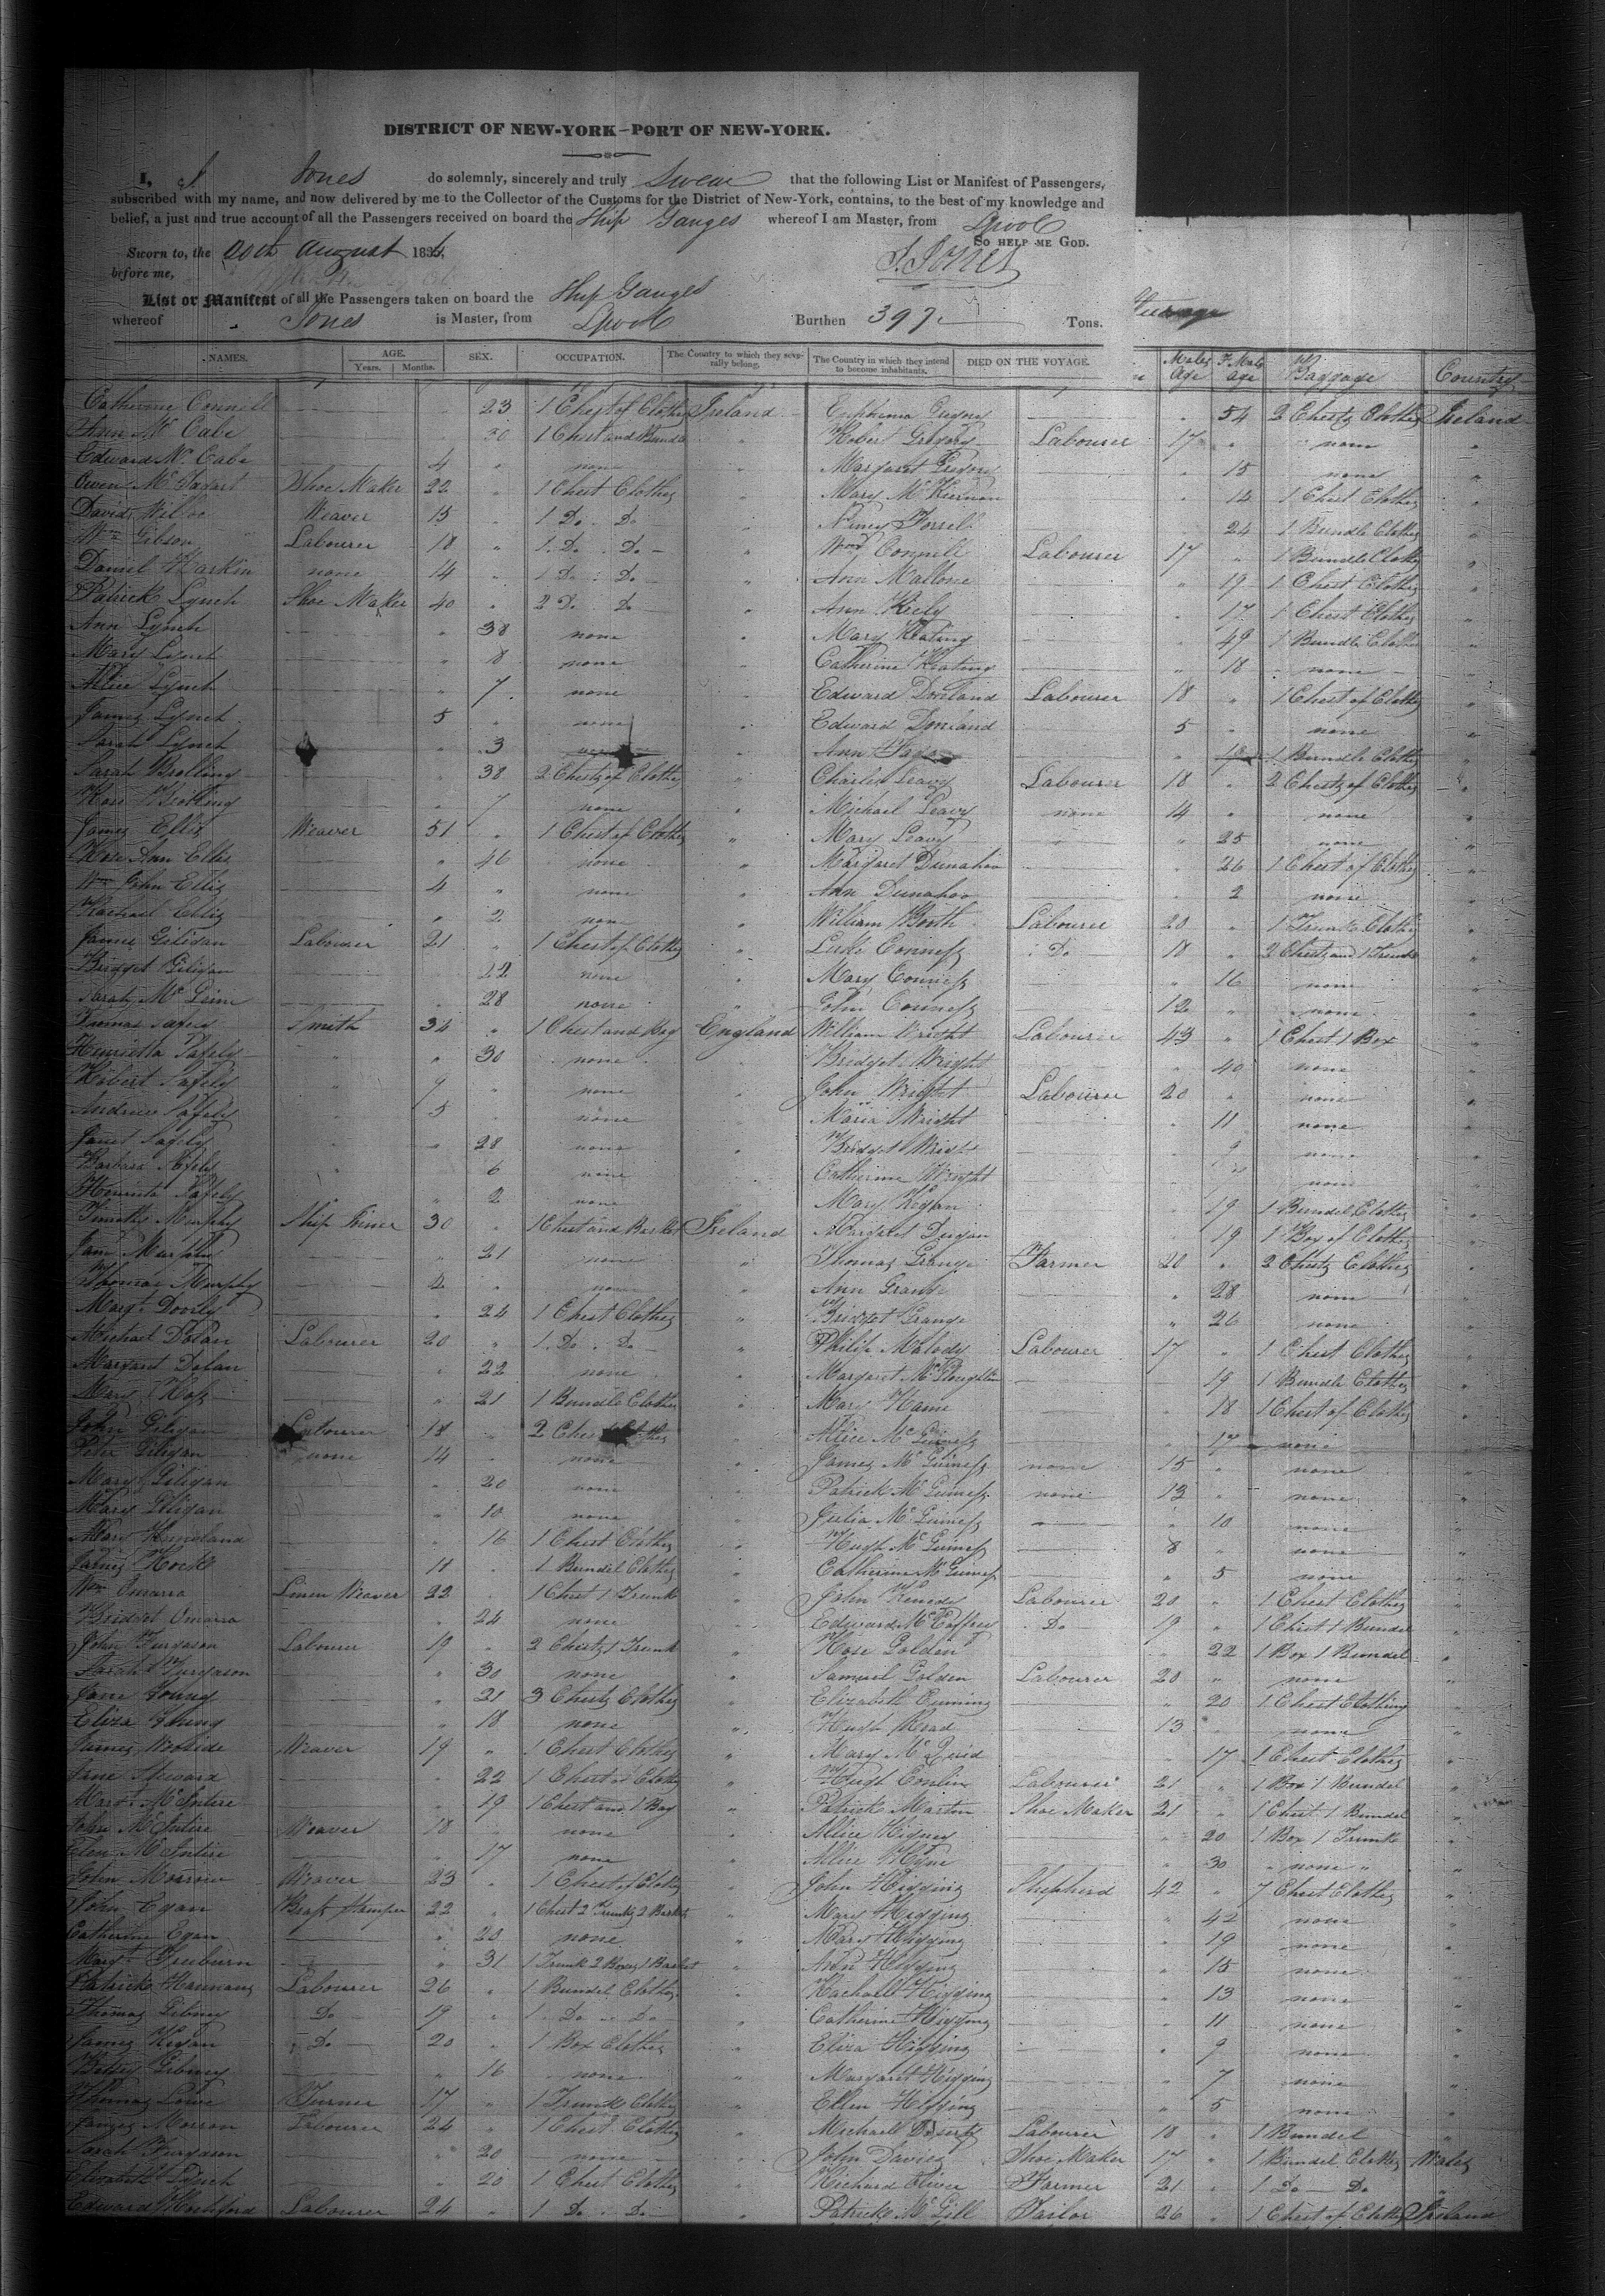 DISTRICT OF NEW-YORK—PORT OF NEW-YORK.
I, J. Jones do solemnly, sincerely and truly Swear that the following List or Manifest of Passengers,
subscribed with my name, and now delivered by me to the Collector of the Customs for the District of New-York, contains, to the best of my knowledge and
belief, a just and true account of all the Passengers received on board the Ship Ganges whereof I am Master, from Lpool
So HELP ME GOD.
Sworn to, the 20th August 183
before me,
J. Jones
List or Manifest of all the Passengers taken on board the Ship Ganges
whereof Jones is Master, from Lpool Burthen 397 Tons.
Steerage
NAMES. AGE. Years. Months. SEX. OCCUPATION. The Country to which they severally belong. The Country in which they intend to become inhabitants. DIED ON THE VOYAGE. Males Age F. Males age Baggage Country
Catherine Connell 23 1 Chest of Clothes Ireland
Ann Mc Cabe 30 1 Chest and Bundle "
Edward Mc Cabe 4 " none "
Owen Shoe Maker 22 " 1 Chest Clothes "
David Weaver 15 " 1 Do. Do. "
Wm Gibson Labourer 18 " 1 Do. Do. "
Daniel Harkin none 14 " 1 Do. Do. "
Patrick Lynch Shoe Maker 40 " 2 Do. Do. "
Ann Lynch " 38 none "
Mary Lynch " 8 none "
Alice Lynch " 7 none "
James Lynch 5 " none "
Sarah Lynch " 3
Sarah Brolling " 38 2 Chests of Clothes "
" 7 none "
James Ellis Weaver 51 " 1 Chest of Clothes "
Rose Ann Ellis " 46 none "
Wm John Ellis 4 " none "
Rachael Ellis " 2 none "
Giligan Labourer 21 " 1 Chest of Clothes "
Bridget Giligan " 22 none "
Sarah Mc " 28 none "
Thomas Safely Smith 34 " 1 Chest and Bag England
Henrietta Safely " 30 none "
Robert Safely 9 " none "
Andrew Safely 5 " none "
Janet Safely " 28 none "
Barbara Safely " 6 none "
Henrietta Safely " 2 none "
Timothy Murphy Ship 30 " 1 Chest and Basket Ireland
Jane Murphy " 21 none "
Thomas Murphy 2 " none "
Margt 24 1 Chest Clothes "
Michael Dolan Labourer 20 " 1 Do. Do. "
Margaret Dolan " 22 none "
Mary Ross " 21 1 Bundle Clothes "
John Giligan Labourer 18 " 2 Chests Clothes
Peter Giligan none 14 " none "
Mary Giligan " 20 none "
Mary Giligan " 10 none
Mary " 16 1 Chest Clothes "
James 11 " 1 Bundel Clothes "
Wm Omarra Linen Weaver 22 " 1 Chest 1 Trunk "
Bridget Omarra " 24 none "
John Furgason Labourer 19 " 2 Chests 1 Trunk "
Sarah Furgason " 30 none "
Jane Young " 21 3 Chests Clothes "
Eliza Young " 18 none "
James Weaver 19 " 1 Chest Clothes "
Jane Steward " 22 1 Chest of Clothes "
Margt McEntire " 19 1 Chest and 1 Bag "
John McEntire Weaver 18 " none
Ellen McEntire " 17 none "
John Morrow Weaver 23 " 1 Chest of Clothes "
John Egan Brass Stamper 22 " 1 Chest 2 Trunks 2 Baskets "
Catherine Egan " 20 none "
Margt " 31 1 Trunk 2 Boxes 1 Basket "
Patrick Labourer 26 " 1 Bundel Clothes "
Thomas Gibney Do 19 " 1 Do. Do. "
James Kegan Do 20 " 1 Box Clothes "
Betsy Gibney " 16 none "
Thomas Turner 17 " 1 Trunk Clothes "
James Morron Labourer 24 " 1 Chest Clothes "
Sarah Furgason " 20 none "
Elizabeth Lynch " 20 1 Chest Clothes "
Edward Labourer 24 " 1 Do. Do. "
Gregory 54 2 Chests Clothes Ireland
Robert Gregory Labourer 17 " none "
Margaret Gregory " 15 none "
Mary McKiernan " 14 1 Chest Clothes "
24 1 Bundle Clothes "
Wm Connell Labourer 17 " 1 Bundle Clothes "
Ann Mallone " 19 1 Chest Clothes "
Ann Kiely " 17 1 Chest Clothes "
Mary Keating " 49 1 Bundle Clothes "
Catherine Keating " 18 none "
Edward Labourer 18 " 1 Chest of Clothes "
Edward 5 " none "
Ann 1 Bundle Clothes "
Charles Leavy Labourer 18 " 2 Chests of Clothes "
Michael Leavy none 14 " none "
Mary Leavy " 25 none "
Margaret Dunahoo " 26 1 Chest of Clothes "
Ann Dunahoo " 2 none "
William Booth Labourer 20 " 1 Trunk Clothes "
Luke Conness Do 18 " 2 Chests and 1 Trunk "
Mary Conness " 16 none "
John Conness 12 " none "
William Wright Labourer 43 " 1 Chest 1 Box "
Bridget Wright " 40 none "
John Wright Labourer 20 " none "
Maria Wright " 11 none "
Bridget Wright " 9 none "
Catherine Wright none
Mary Kegan " 19 1 Bundel Clothes "
Margaret Dugan " 19 1 Box of Clothes "
Thomas Grange Farmer 20 " 2 Chests Clothes "
Ann Grange " 28 none "
Bridget Grange " 26 none "
Philip Malody Labourer 17 " 1 Chest Clothes "
Margaret " 19 1 Bundle Clothes "
Mary Hame " 18 1 Chest of Clothes "
Alice McGuiness " 17 none
James McGuiness none 15 " none "
Patrick McGuiness none 13 " none "
Julia McGuiness " 10 none "
Hugh McGuiness 8 " none "
Catherine McGuiness " 5 none "
John Kenedy Labourer 20 " 1 Chest Clothes "
Edward McCaffrey Do 19 " 1 Chest 1 Bundel "
Rose Golden " 22 1 Box 1 Bundel "
Samuel Golden Labourer 20 " none "
Elizabeth Cuming " 20 1 Chest Clothing "
Hugh Read 13 " none "
Mary McQuid " 17 1 Chest Clothes "
Hugh Conlin Labourer 21 " 1 Box 1 Bundel "
Patrick Martin Shoe Maker 21 " 1 Chest 1 Bundel "
Alice " 20 1 Box 1 Trunk "
Alice " 30 none "
John Higgins Shepherd 42 " 7 Chest Clothes "
Mary Higgins " 42 none "
Mary Higgins " 19 none "
Ann Higgins " 15 none "
Rachael Higgins " 13 none "
Catherine Higgins " 11 none "
Eliza Higgins " 9 none "
Margaret Higgins " 7 none "
Ellen Higgins " 5 none "
Michael Labourer 18 " 1 Bundel "
John Davies Shoe Maker 17 " 1 Bundel Clothes Wales
Richard Oliver Farmer 21 " 1 Do — Do "
Patrick McGill Tailor 26 " 1 Chest of Clothes Ireland